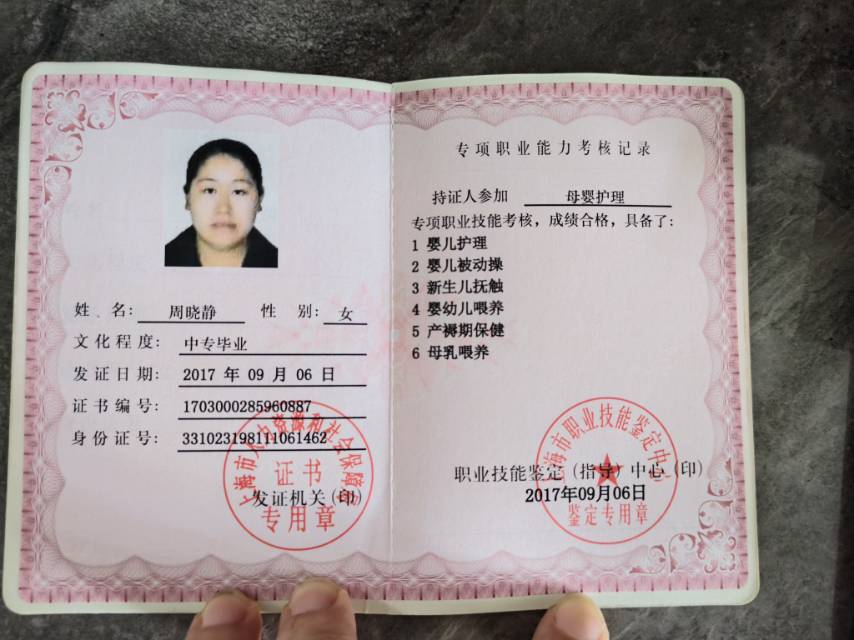 姓 名: 周晓静 性 别: 女
文化程度: 中专毕业
发证日期: 2017 年 09 月 06 日
证书编号: 1703000285960887
身份证号: 331023198111061462
上海市人力资源和社会保障局
证书
发证机关(印)
专用章
专项职业能力考核记录
持证人参加 母婴护理
专项职业技能考核，成绩合格，具备了:
1 婴儿护理
2 婴儿被动操
3 新生儿抚触
4 婴幼儿喂养
5 产褥期保健
6 母乳喂养
上海市职业技能鉴定中心
职业技能鉴定(指导)中心(印)
2017年09月06日
鉴定专用章